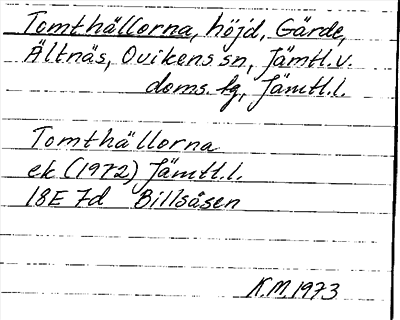 Tomthällorna, höjd, Gärde,
Ältnäs, Ovikens sn, Jämtl.v.
doms. tg, Jämtl.l.
Tomthällorna
ek (1972) Jämtl.l.
18E 7d Billsåsen
K.M. 1973